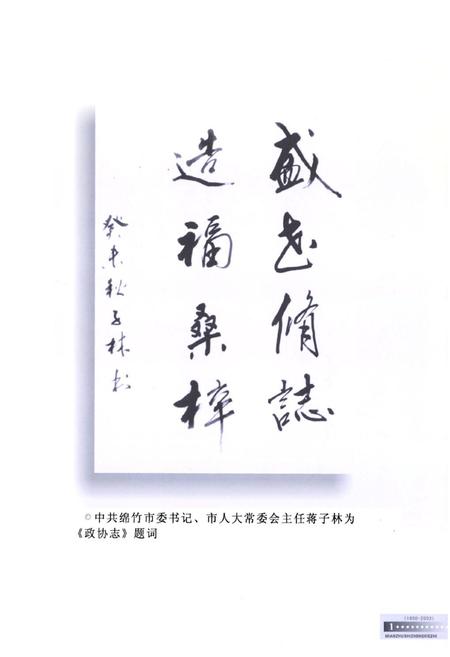 盛世修誌
造福桑梓
癸未秋子林书
◎中共绵竹市委书记、市人大常委会主任蒋子林为
《政协志》题词
(1950-2003)
1
MIANZHUSHIZHENGXIEZHI